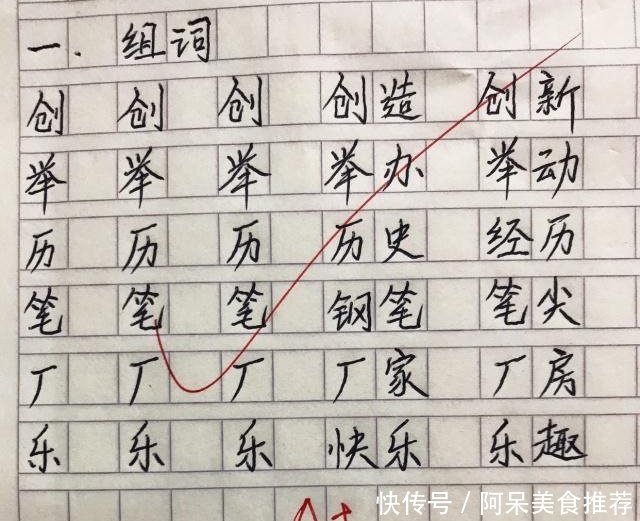 一. 组词
创 创 创 创造 创新
举 举 举 举办 举动
历 历 历 历史 经历
笔 笔 笔 钢笔 笔尖
厂 厂 厂 厂家 厂房
乐 乐 乐 快乐 乐趣
A+
快传号/阿呆美食推荐